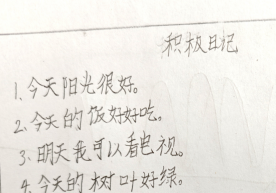 积极日记
1.今天阳光很好。
2.今天的饭好好吃。
3.明天我可以看电视。
4.今天的树叶好绿。